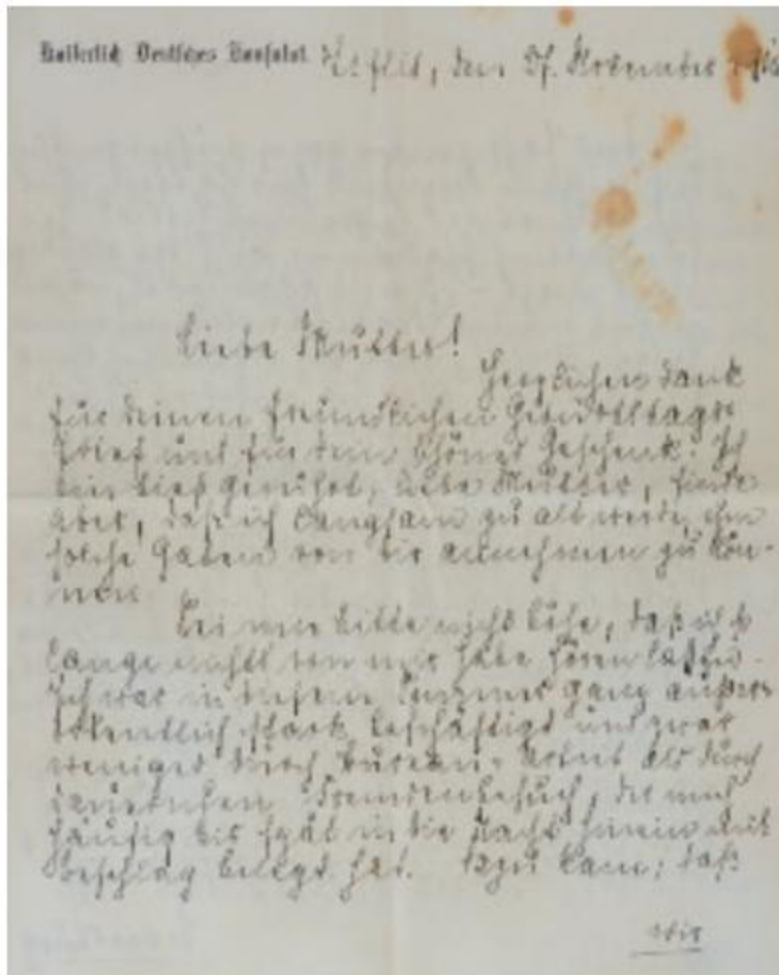 Kaiserlich Deutsches Konsulat. Tiflis, den 27. November
Liebe Mutter!
Herzlichen Dank
für Deinen freundlichen Geburtstags-
brief und für Dein schönes Geschenk. Ich
bin tief gerührt, liebe Mutter, finde
aber, daß ich langsam zu alt werde, um
solche Gaben von Dir annehmen zu kön-
nen.
Sei mir bitte nicht böse, daß ich so
lange nichts von mir habe hören lassen.
Ich war in diesem Sommer ganz außer-
ordentlich stark beschäftigt und zwar
weniger durch Bureau-Arbeit als durch
dauernden Fremdenbesuch, der mich
häufig bis spät in die Nacht hinein mit
Beschlag belegt hat. Dazu kam, daß
wir